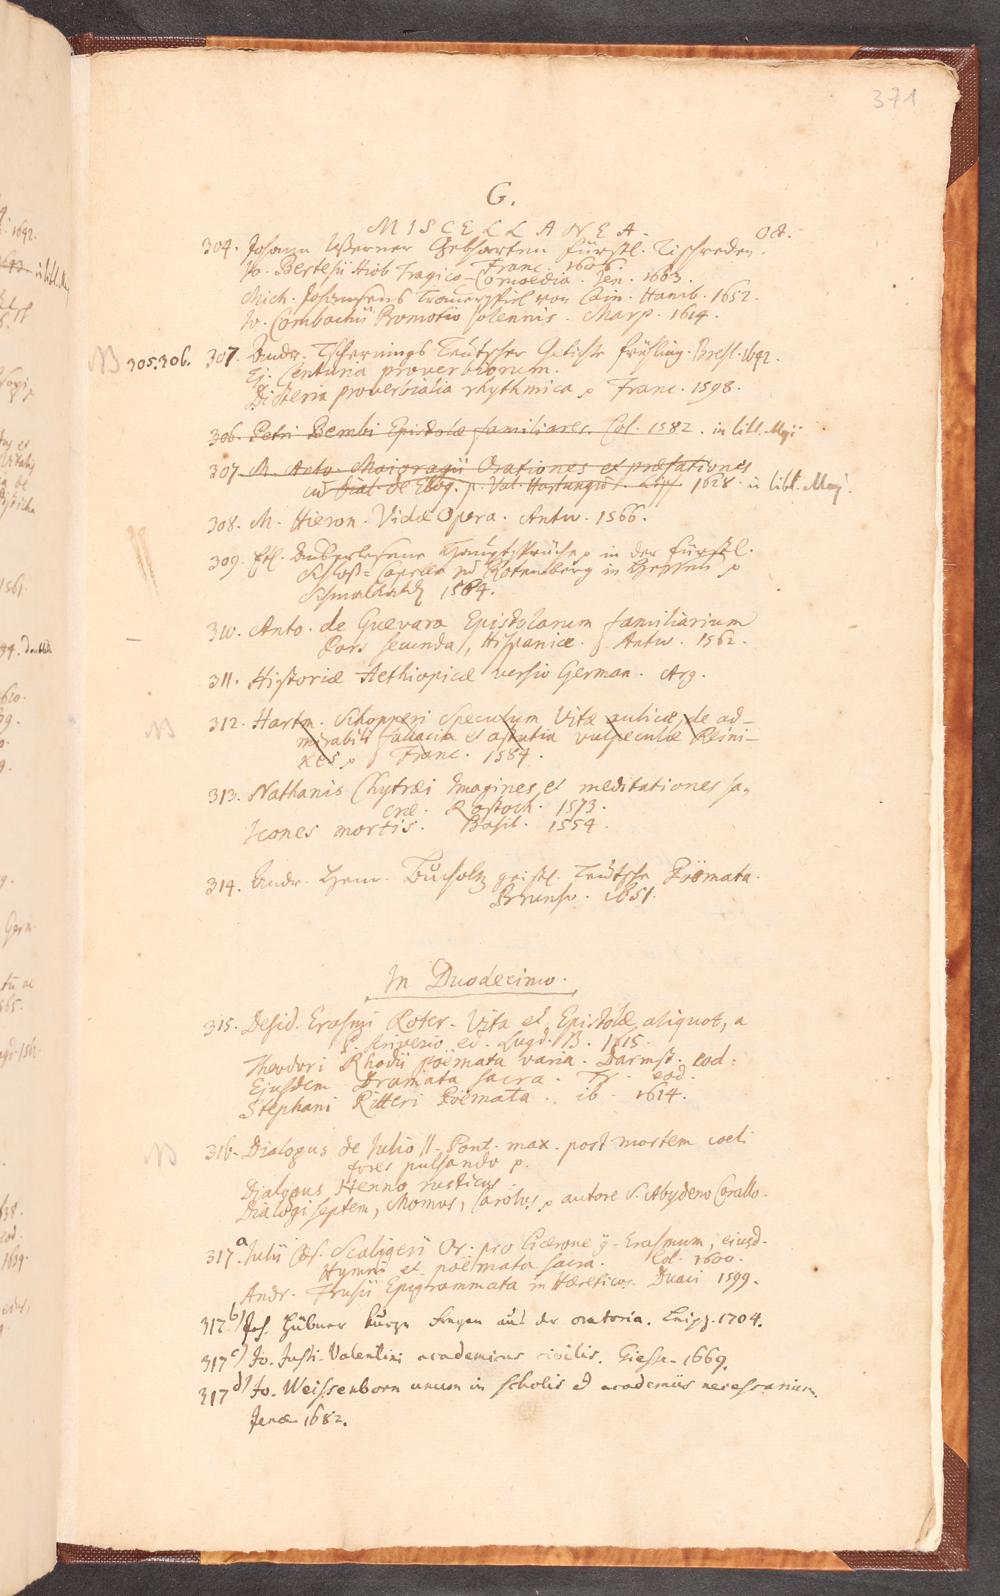 371
G.
MISCELLANEA. Oct.
304. Johann Werner Gebharten fürstl. Tischreden.
Franc. 1606.
Jo. Bertesii Hiob Tragico-Comoedia. Jen. 1603.
Mich. Johansens Trauerspiel von Cain. Hamb. 1652.
Jo. Combachii Promotio solennis. Marp. 1614.
NB 305.306. 307. Andr. Tschernings Teutscher Getichte frühling. Bresl. 1642.
Ej. Centuria proverbiorum.
Dicteria proverbialia rhythmica p Franc. 1598.
306. Petri Bembi Epistolæ familiares. Col. 1582. in libl. Maji
307 M. Anto. Maioragii Orationes et præfationes
cū Dial. de Eloq. p. Val. Hartungiū. Lips. 1628. in libl. Maj.
308. M. Hieron. Vidæ Opera. Antw. 1566.
309. Etl. Außerlesene Hauptsprüche p in der fürstl.
Schloß-Capelle zu Rotenberg in Hessen p
Schmalkald. 1564.
310. Anto. de Guevara Epistolarum familiarium
Pars secunda, Hispanice. Antw. 1562.
311. Historiæ Aethiopicæ versio German. Arg.
NB 312. Hartm. Schopperi Speculum Vitæ aulicæ, de ad-
mirabili fallacia et astutia vulpeculæ Reini-
kes p Franc. 1584.
313. Nathanis Chytræi Imagines et meditationes sa-
cræ. Rostoch. 1573.
Icones mortis. Basil. 1554.
314. Andr. Henr. Bucholtz geistl. Teütsche Pöemata.
Brunsv. 1651.
In Duodecimo.
315. Desid. Erasmi Roter. Vita et Epistolæ aliquot, a
P. Scriverio ed. Lugd. B. 1615.
Theodori Rhodii poëmata varia. Darmst. eod.
Ejusdem Dramata sacra. Fr. eod.
Stephani Ritteri Poëmata. ib. 1614.
NB 316. Dialogus de Julio II. Pont. max. post mortem coeli
fores pulsando p.
Dialogus Henno rusticus.
Dialogi septem, Momus, Carolus p autore S. Abydeno Corallo.
317.a Julii Cæs. Scaligeri Or. pro Cicerone g. Erasmum, eiusd.
Hymni et poëmata sacra. Col. 1600.
Andr. Frusii Epigrammata in Hæreticos. Duaci 1599.
317 b) Joh. Hübner kurze Fragen aus der oratoria. Leipz. 1704.
317 c) Jo. Justi Valentini academicus civilis. Giess. 1669.
317 d) Jo. Weissenborn unum in scholis et academiis necessarium.
Jenæ 1682.